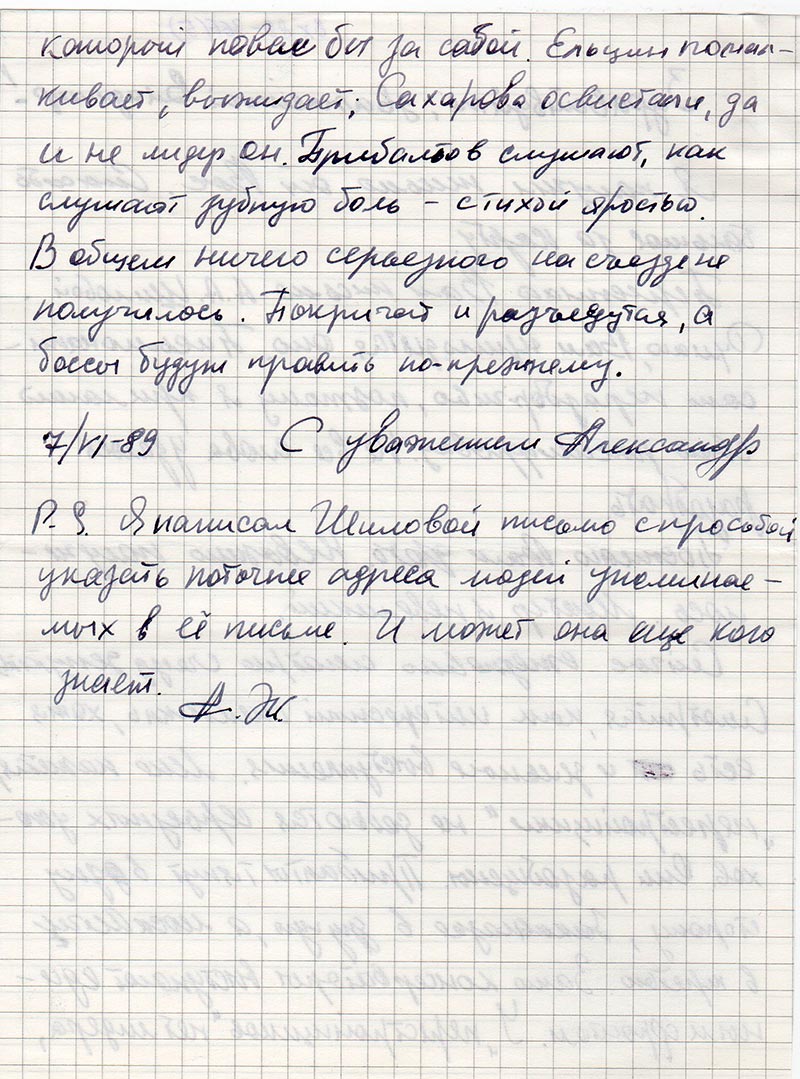 который повел бы за собой. Ельцин помал-
кивает, выжидает; Сахарова освистали, да
и не лидер он. Прибалтов слушают, как
слушают зубную боль - с тихой яростью.
В общем ничего серьезного на съезде не
получилось. Покричат и разъедутся, а
боссы будут править по-прежнему.
7/VI-89 С уважением Александр
P.S. Я написал Шиловой письмо с просьбой
указать поточнее адреса людей упоминае-
мых в её письме. И может она еще кого
знает.
А.Ж.